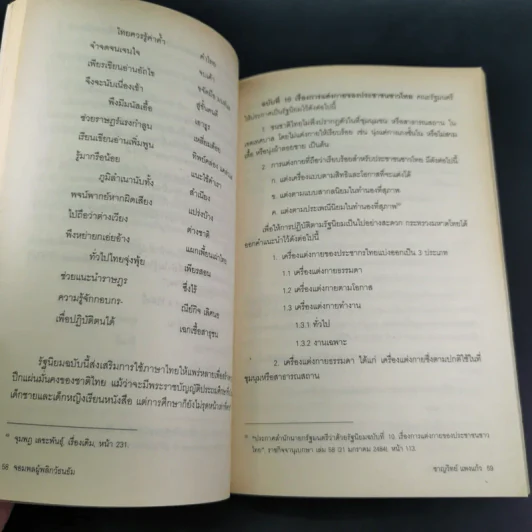 ไทยควรรู้ค่าค้ำ
คำไทย
จำจดจนเจนใจ
จบคำ
เพียรเขียนอ่านอักไข
จึงจะนับเนื่องเข้า
พึงมีมนัสเอื้อ
ช่วยราษฎร์เร่งกำลูน
เอาธูร
เรียนเขียนอ่านเพิ่มพูน
รู้มากรือน้อย
แนะใช้คำเรา
ภูมิลำเนานับทั้ง
สำเนียง
พจน์พากย์หากผิดเสียง
แปร่งบ้าง
ไปถือว่าต่างเวียง
ต่างชาติ
พึงหย่ายกเย่ยอ้าง
ทั่วไปไทยจุ่งฟุ้ย
เพียรสอน
ช่วยแนะนำราษฎร
ซึ่งไร้
ความรู้จักกอบกร-
เพื่อปฏิบัติตนได้
รัฐนิยมฉบับนี้ส่งเสริมการใช้ภาษาไทยให้แพร่หลายเพื่อ
ปึกแผ่นมั่นคงของชาติไทย แม้ว่าจะมีพระราชบัญญัติประถมศึกษา
เด็กชายและเด็กหญิงเรียนหนังสือ แต่การศึกษาก็ยังไม่รุดหน้า
เรื่องเดิม, หน้า 231.
58 จอมพลผู้พลิกวัธนธัม
ฉบับที่ 10 เรื่องการแต่งกายของประชาชนชาวไทย คณะรัฐมนตรี
ได้ประกาศเป็นรัฐนิยมไว้ดังต่อไปนี้
1. ชนชาติไทยไม่พึงปรากฏตัวในที่ชุมนุมชน หรือสาธารณสถาน ใน
เขตเทศบาล โดยไม่แต่งกายให้เรียบร้อย เช่น นุ่งแต่กางเกงชั้นใน หรือไม่สวม
เสื้อ หรือนุ่งผ้าลอยชาย เป็นต้น
2. การแต่งกายที่ถือว่าเรียบร้อยสำหรับประชาชนชาวไทย มีดังต่อไปนี้
ก. แต่งเครื่องแบบตามสิทธิและโอกาสที่จะแต่งได้
ข. แต่งตามแบบสากลนิยมในทำนองที่สุภาพ
ค. แต่งตามประเพณีนิยมในทำนองที่สุภาพ
เพื่อให้การปฏิบัติตามรัฐนิยมเป็นไปอย่างสะดวก กระทรวงมหาดไทยได้
ออกคำแนะนำไว้ดังต่อไปนี้
1. เครื่องแต่งกายของประชากรไทยแบ่งออกเป็น 3 ประเภท
1.1 เครื่องแต่งกายธรรมดา
1.2 เครื่องแต่งกายตามโอกาส
1.3 เครื่องแต่งกายทำงาน
1.3.1 ทั่วไป
1.3.2 งานเฉพาะ
2. เครื่องแต่งกายธรรมดา ได้แก่ เครื่องแต่งกายซึ่งตามปกติใช้ในที่
ชุมนุมหรือสาธารณสถาน
"ประกาศสำนักนายกรัฐมนตรีว่าด้วยรัฐนิยมฉบับที่ 10, เรื่องการแต่งกายของประชาชนชาว
ไทย", ราชกิจจานุเบกษา เล่ม 58 (31 มกราคม 2484), หน้า 113.
ชาญวิทย์ แพงแก้ว 59